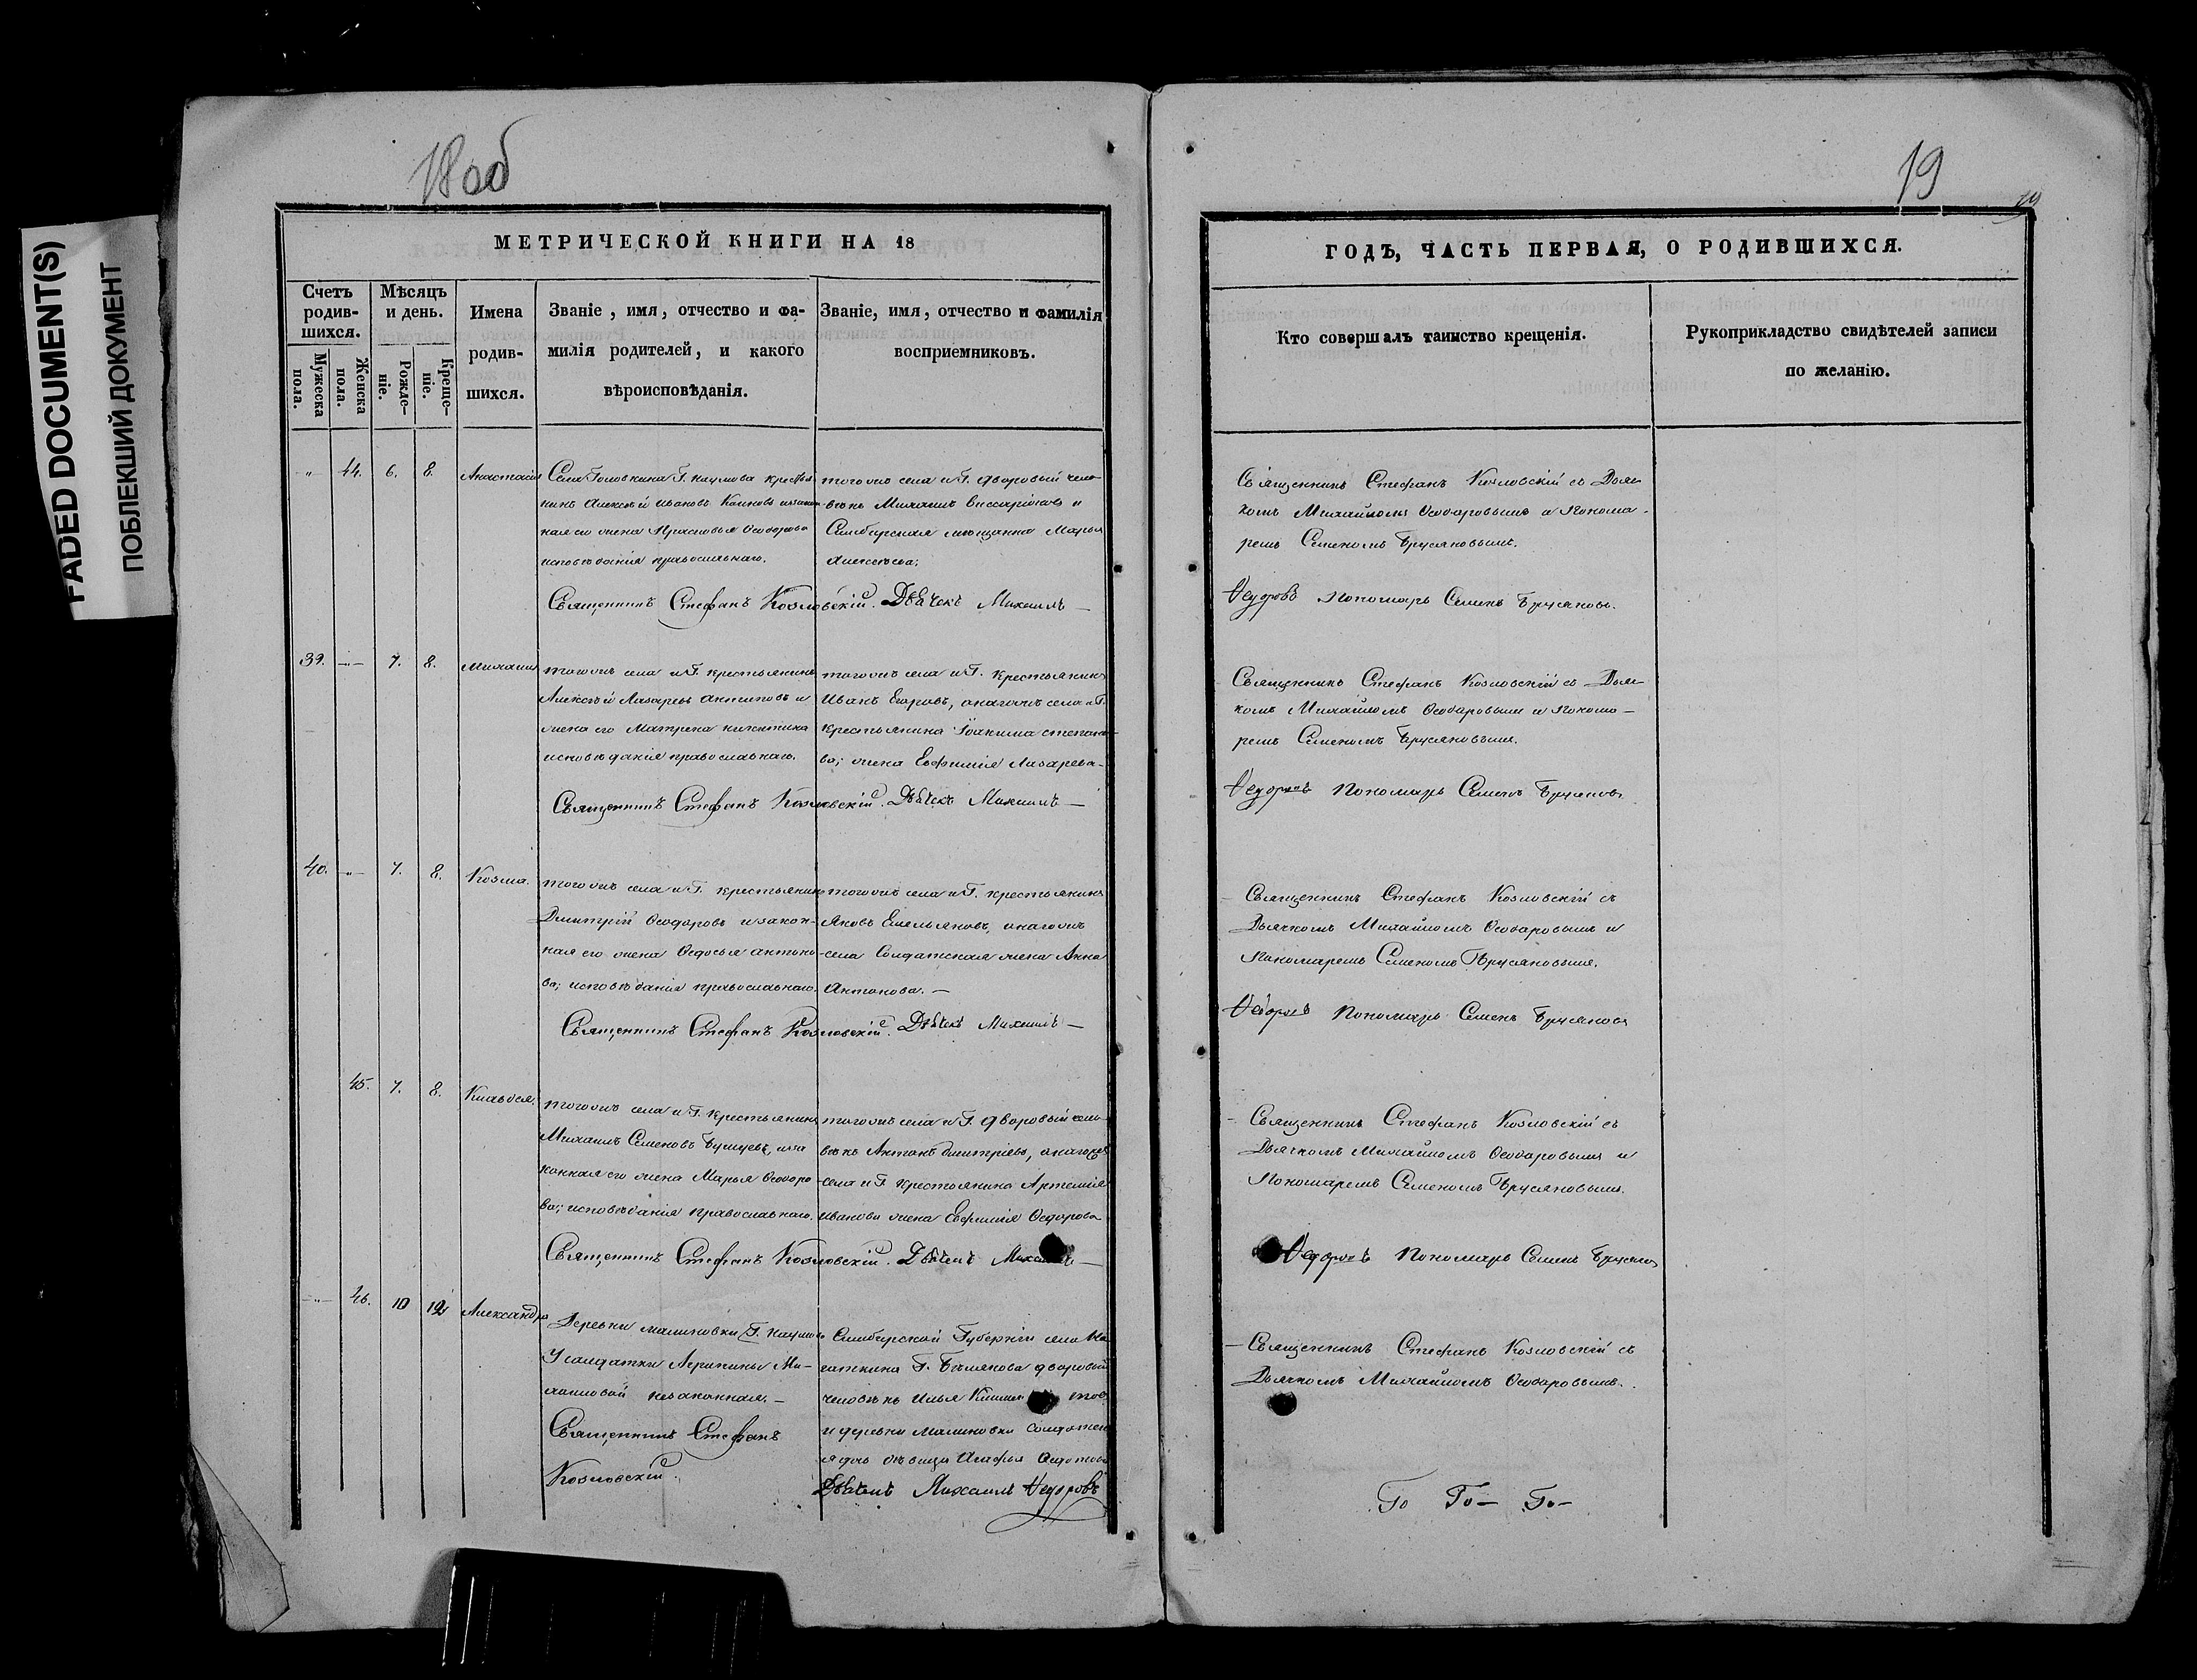 FADED DOCUMENT(S)
ПОБЛЕКШИЙ ДОКУМЕНТ
18 об
МЕТРИЧЕСКОЙ КНИГИ НА 18
Счетъ родившихся.
Мужеска пола.
Женска пола.
Мѣсяцъ и день.
Рожденіе.
Крещеніе.
Имена
родив-
шихся.
Званіе , имя, отчество и фа-
милія родителей, и какого
вѣроисповѣданія.
Званіе, имя, отчество и фамилія
воспріемниковъ.
" 44. 6. 8. Анастасія
Села Головкина Г. Наумова крестья
нинъ Алексѣй Ивановъ и закон
ная его жена Прасковья Ѳеодорова
исповѣданія православнаго.
тогожъ села и Г. дворовый чело
вѣкъ Михаилъ Виссаріоновъ и
Симбирская мѣщанка Марья
Алексѣева;
Священникъ Стефанъ Козловскій. Дьячекъ Михаилъ —
39. —„— 7. 8. Михаилъ
тогожъ села и Г. крестьянинъ
Алексѣй Лазаревъ Антиповъ и
жена его Матрена Никитина
исповѣданія православнаго.
тогожъ села и Г. крестьянинъ
Иванъ Егоровъ, онагожъ села и Г.
крестьянина Іоакима Степано-
ва; жена Евфимія Лазарева-
Священникъ Стефанъ Козловскій. Дьячекъ Михаилъ —
40. —„— 7. 8. Козма.
тогожъ села и Г. крестьянинъ
Дмитрій Ѳеодоровъ и закон-
ная его жена Ѳедосья Антоно-
ва; исповѣданія православнаго.
тогожъ села и Г. крестьянинъ
Яковъ Емельяновъ, онагожъ
села Солдатская жена Анна
Антонова. —
Священникъ Стефанъ Козловскій. Дьячекъ Михаилъ —
45. 7. 8. Клавдія.
тогожъ села и Г. крестьянинъ
Михаилъ Семеновъ, и за
конная его жена Марья Ѳеодоро
ва; исповѣданія православнаго.
тогожъ села и Г. дворовый чело-
вѣкъ Антонъ Дмитріевъ, онагожъ
села и Г. крестьянина Артемія
Иванова жена Евфимія Ѳедорова
Священникъ Стефанъ Козловскій. Дьячекъ Михаилъ —
—„— 46. 10 12 Александра
Деревни Малиновки Г. Наумова
У солдатки Агрипины Ми-
хайловой незаконная. —
Священникъ Стефанъ
Козловскій.
Симбирской Губерніи села
Г. дворовый
человѣкъ Илья
и деревни Малиновки солдатск
Агафья
Дьячекъ Михаилъ Ѳедоровъ
19
19
ГОДЪ, ЧАСТЬ ПЕРВАЯ, О РОДИВШИХСЯ.
Кто совершалъ таинство крещенія.
Рукоприкладство свидѣтелей записи
по желанію.
Священникъ Стефанъ Козловскій съ Дьяч
комъ Михайломъ Ѳеодоровымъ и Понома-
ремъ Семеномъ Брусяновымъ.
Ѳедоровъ Пономарь Семенъ Брусяновъ.
Священникъ Стефанъ Козловскій съ Дьяч
комъ Михайломъ Ѳеодоровымъ и Понома-
ремъ Семеномъ Брусяновымъ.
Ѳедоровъ Пономарь Семенъ Брусяновъ
Священникъ Стефанъ Козловскій съ
Дьячкомъ Михайломъ Ѳеодоровымъ и
Пономаремъ Семеномъ Брусяновымъ.
Ѳедоровъ Пономарь Семенъ Брусяновъ
Священникъ Стефанъ Козловскій съ
Дьячкомъ Михайломъ Ѳеодоровымъ и
Пономаремъ Семеномъ Брусяновымъ.
Ѳедоровъ Пономарь Семенъ Брусяновъ
Священникъ Стефанъ Козловскій съ
Дьячкомъ Михайломъ Ѳеодоровымъ.
Го Го— Го—